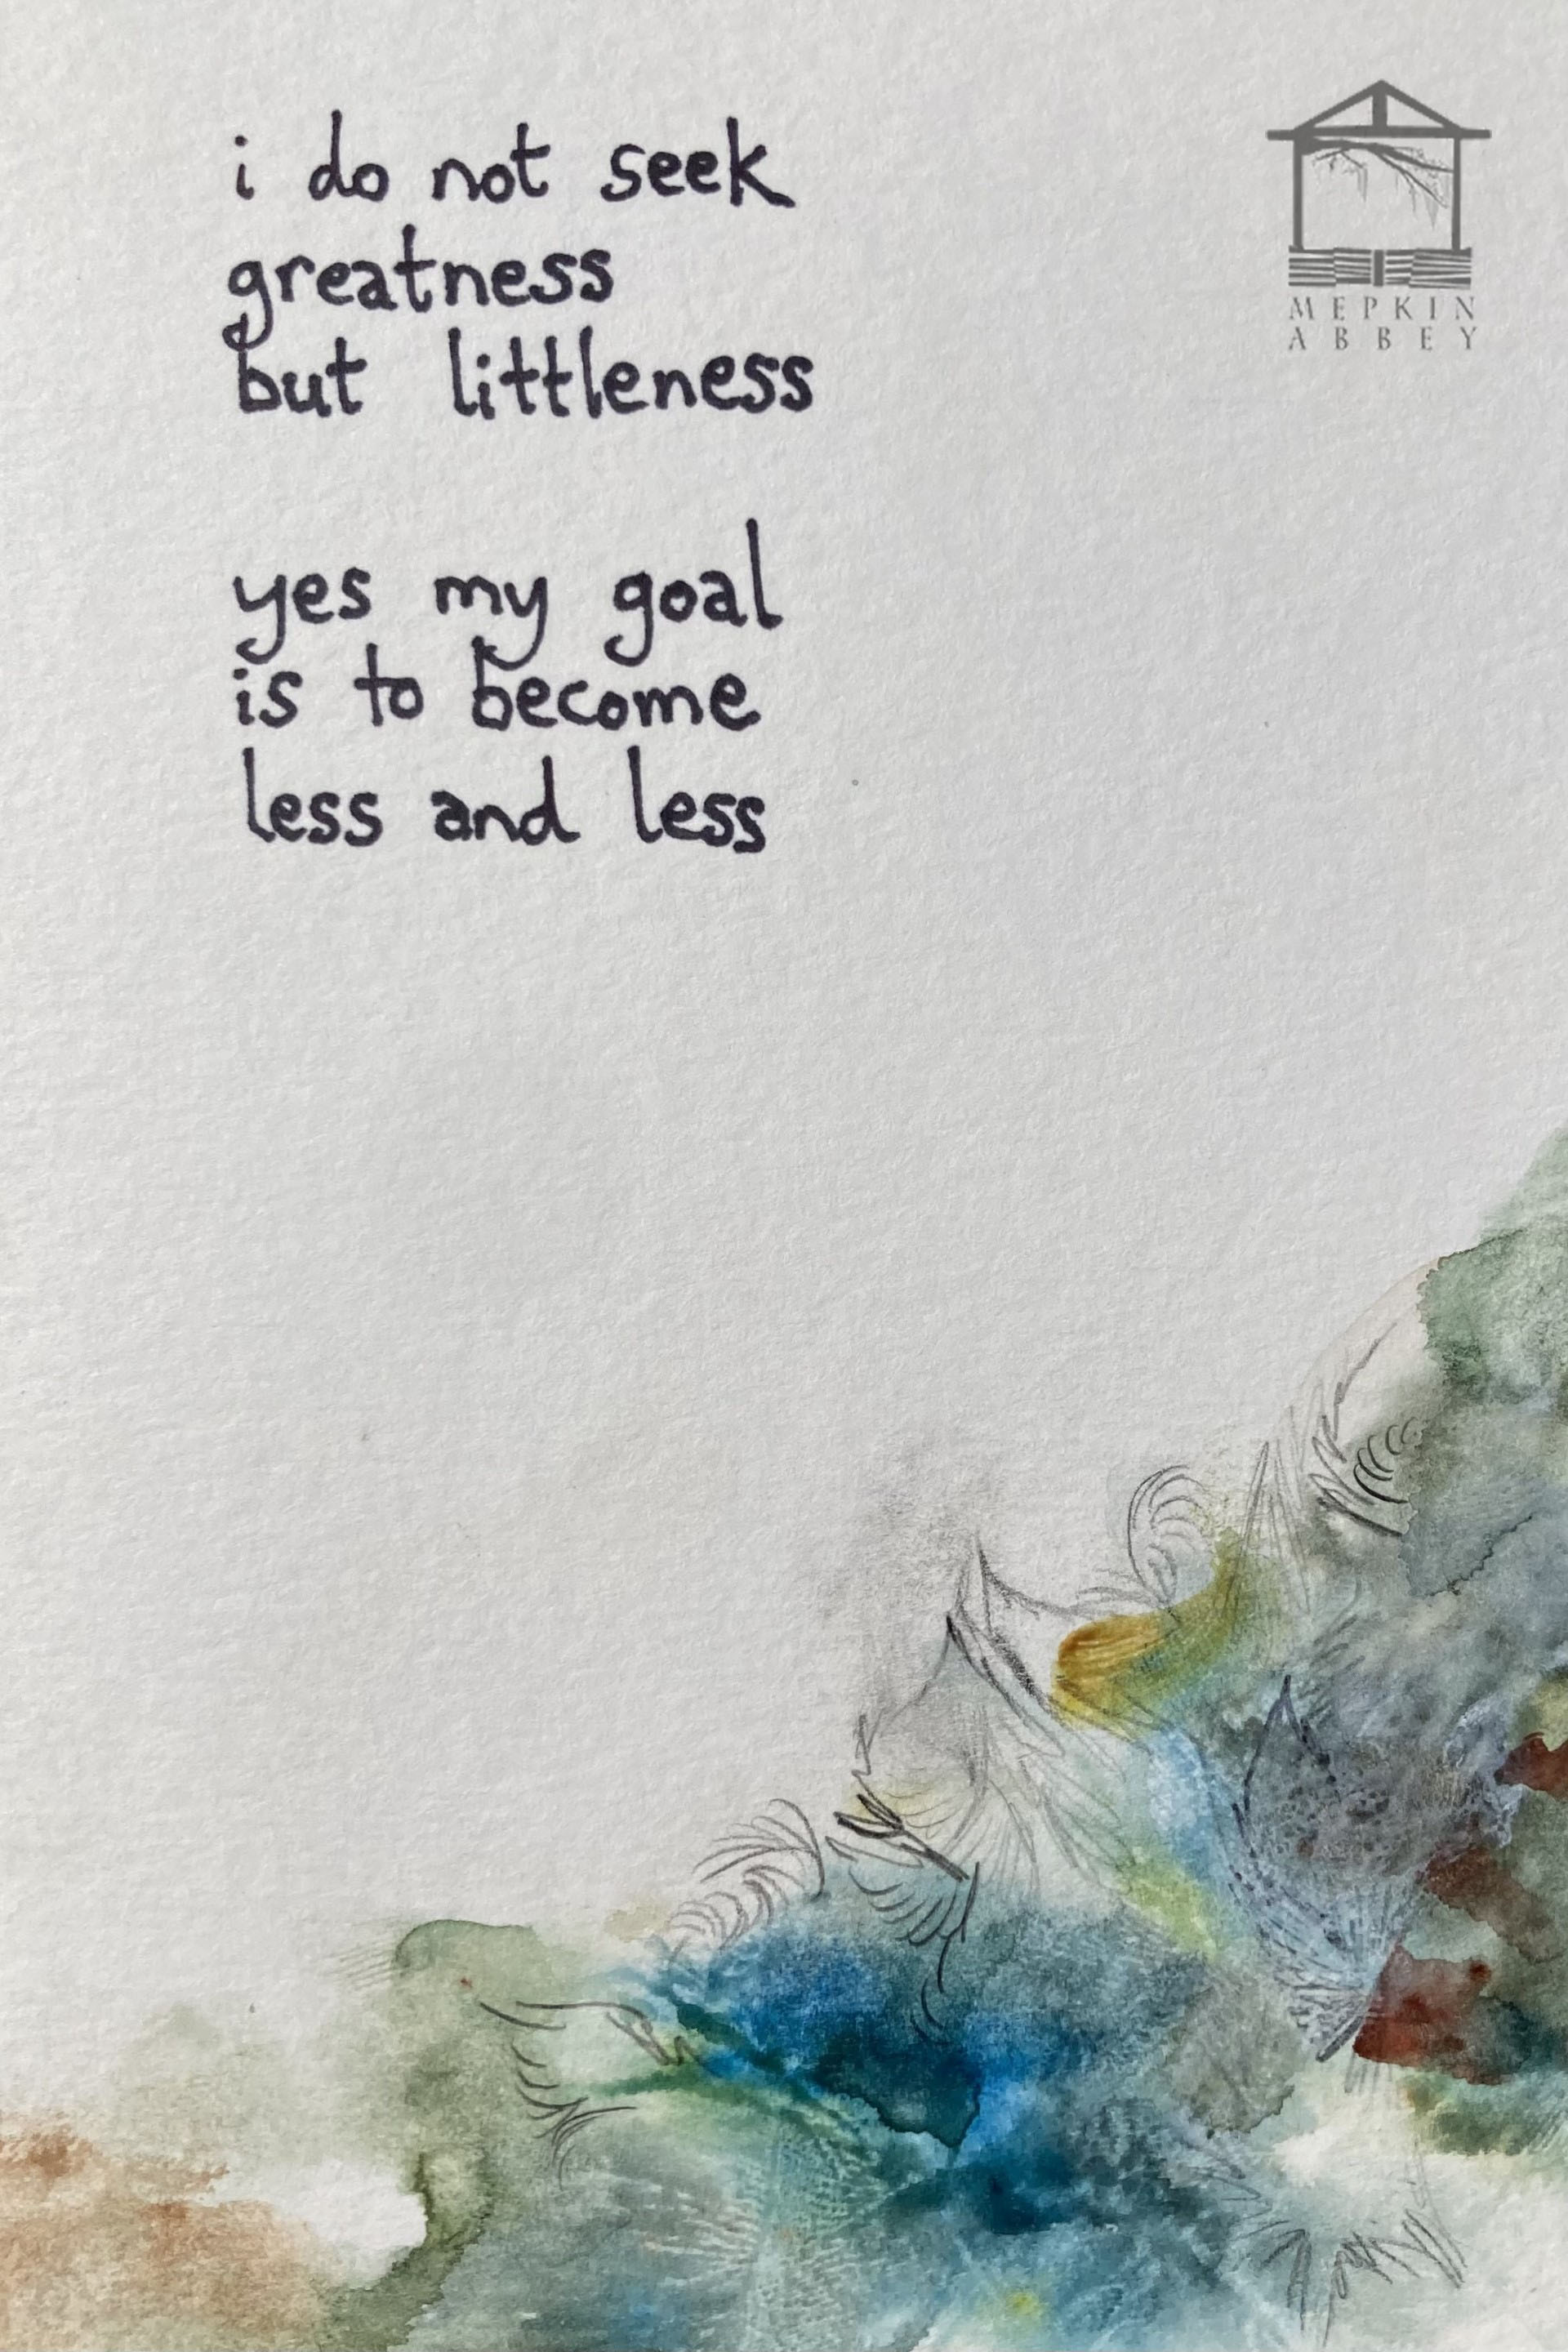 i do not seek
greatness
but littleness
yes my goal
is to become
less and less
MEPKIN
ABBEY